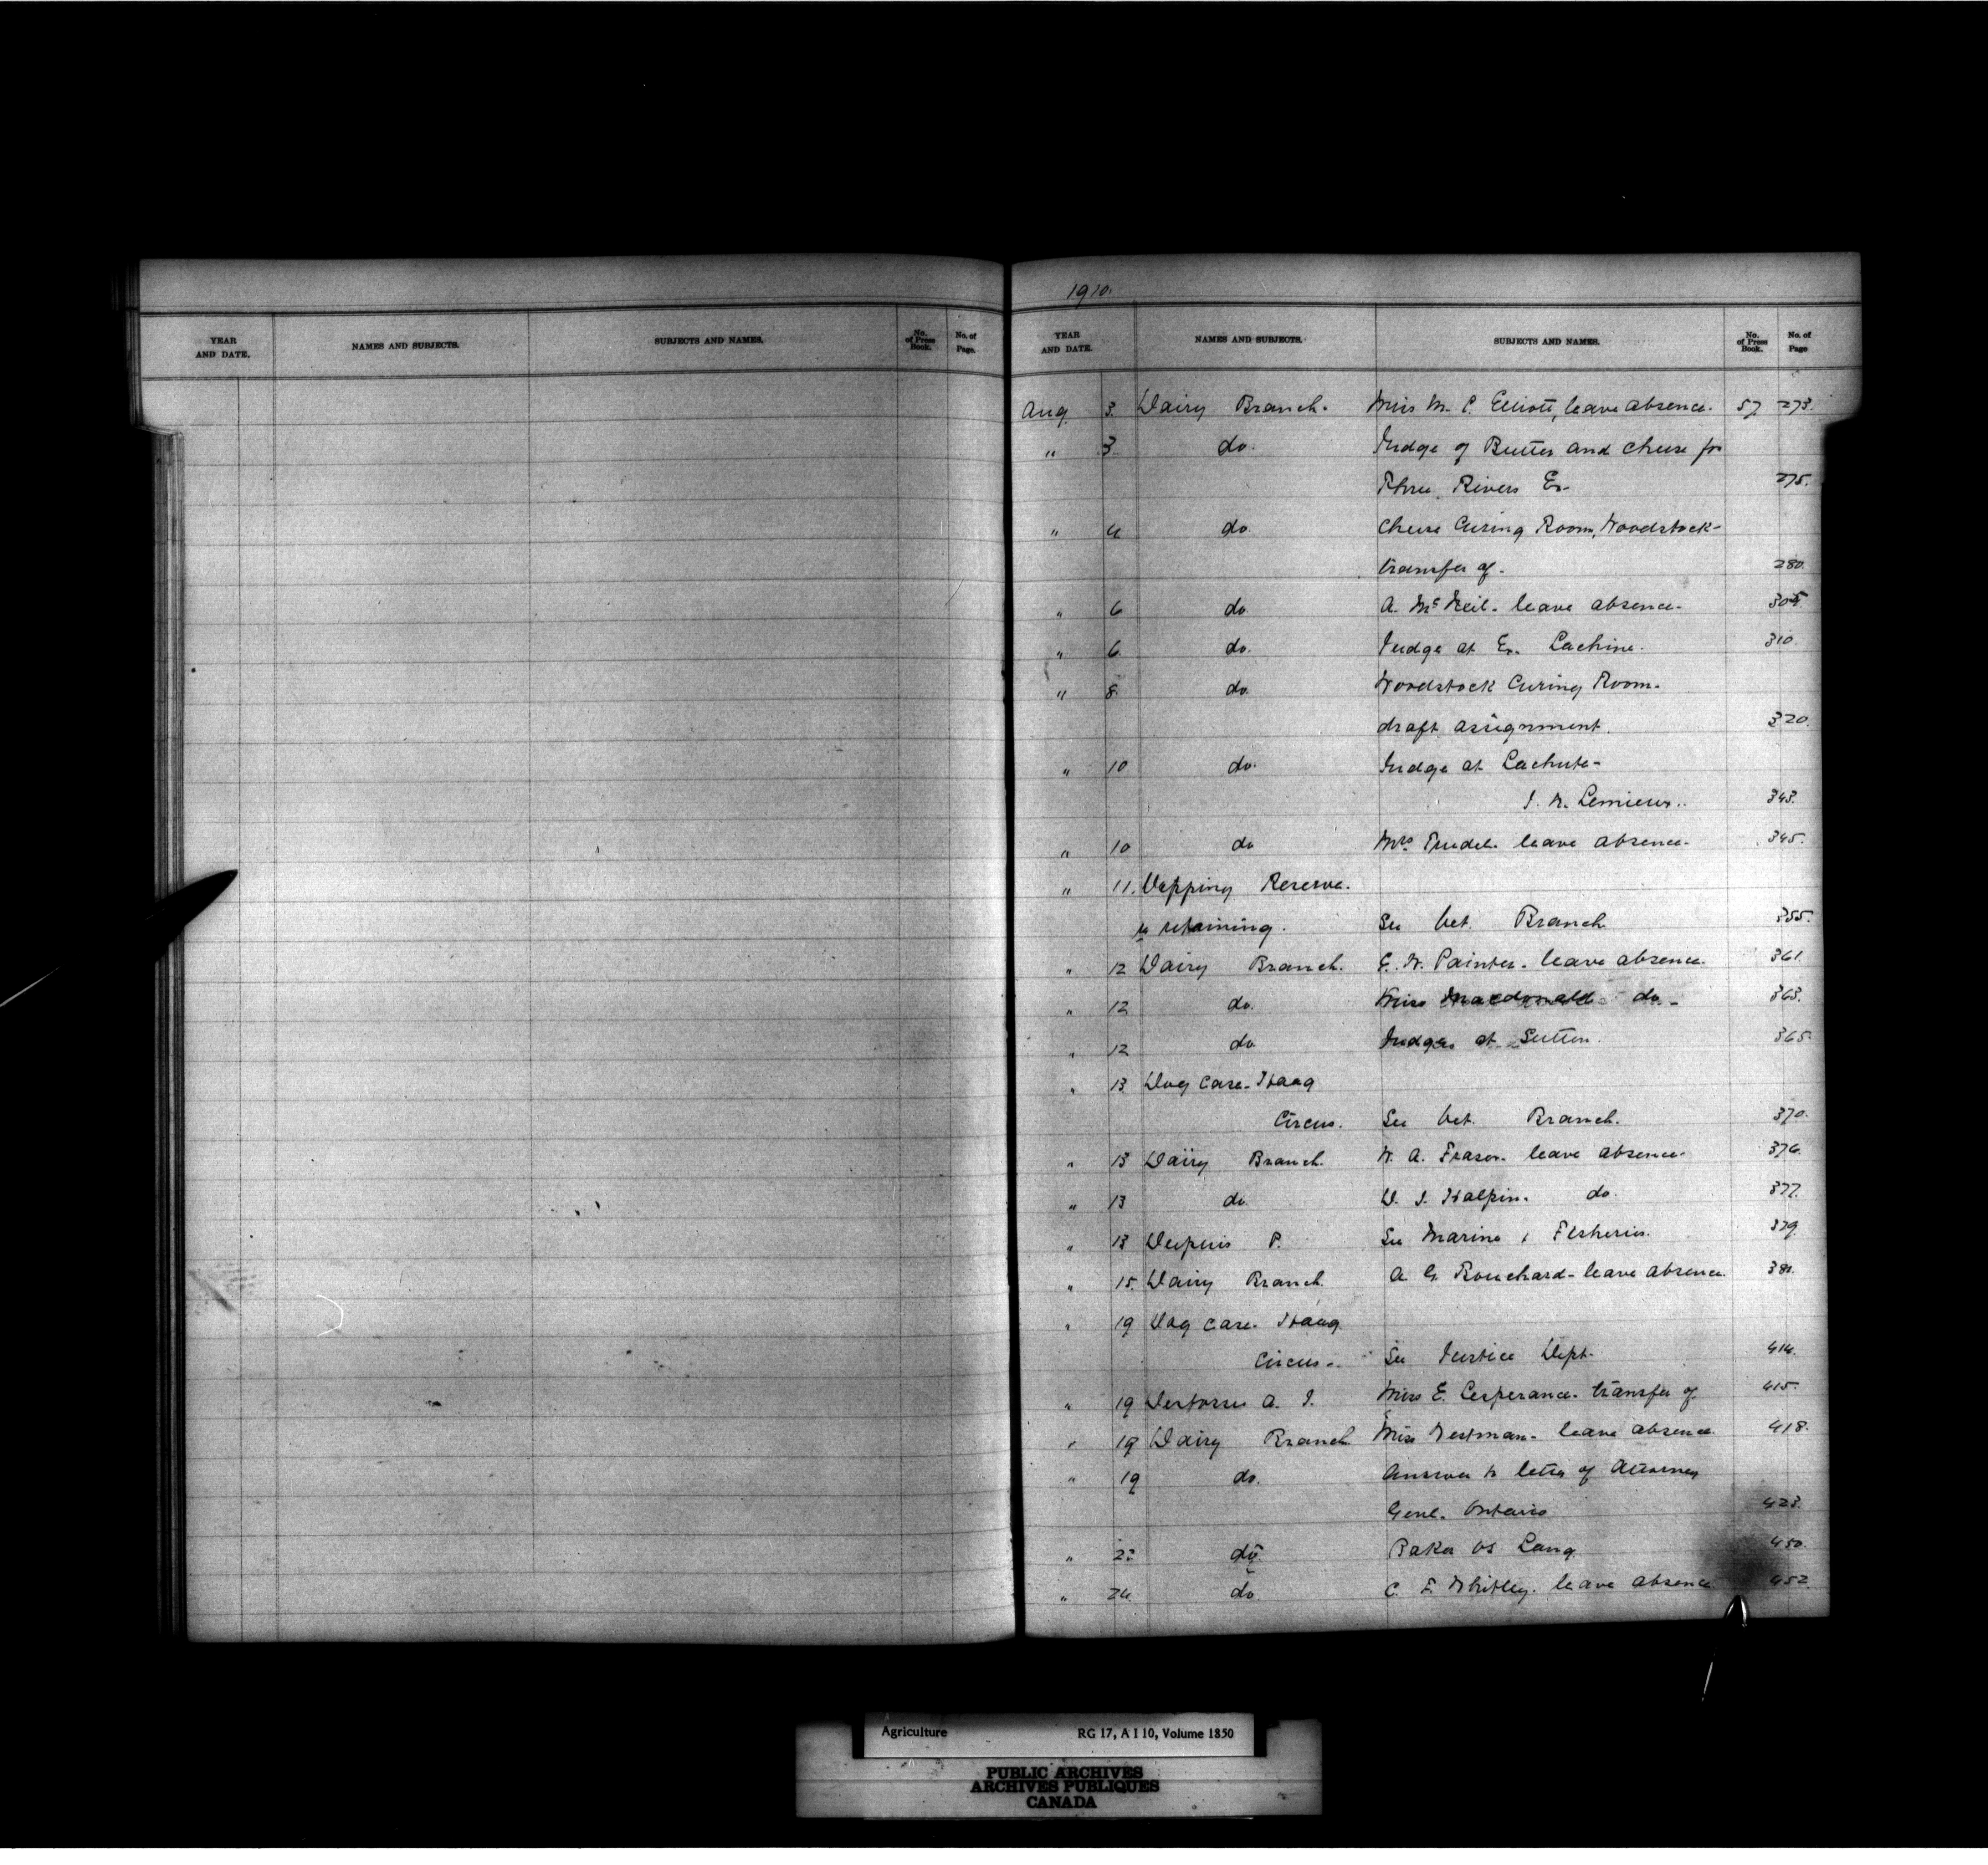 1910.
YEAR AND DATE. NAMES AND SUBJECTS. SUBJECTS AND NAMES. No. of Press Book. No. of Page.
YEAR AND DATE. NAMES AND SUBJECTS. SUBJECTS AND NAMES. No. of Press Book. No. of Page
Aug. 3. Dairy Branch. Miss M. C. Elliott, leave absence. 57 273.
" 3 do. Judge of Butter and Cheese for
Three Rivers Ex- 275.
" 4 do. Cheese Curing Room, Woodstock-
transfer of. 280.
" 6 do A. McNeil. leave absence- 305.
" 6 do. Judge at Ex. Lachine. 310.
" 8. do. Woodstock Curing Room.
draft assignment. 320.
" 10 do. Judge at Lachute-
J. N. Lemieux.. 343.
" 10 do Mrs. Trudel. leave absence. 345.
" 11. Dipping Reserve.
retaining. See Vet. Branch 355.
" 12 Dairy Branch. E. W. Painter. leave absence. 361.
" 12 do. Miss Macdonald do- 363.
" 12 do Judges at Sutton. 365.
" 13 Dog Case. Haag
Circus. See Vet. Branch. 370.
" 13 Dairy Branch. W. A. Fraser. leave absence- 376.
" 13 do D. J. Halpin. do. 377.
" 13 Dupuis P. See Marine & Fisheries. 379.
" 15. Dairy Branch. A. G. Bouchard- leave absence.
" 19 Dog Case. Haag
Circus-. See Justice Dept. 414.
" 19 A. J. Miss E. Lesperance. transfer of 415.
" 19 Dairy Branch Miss Westman- leave absence. 418.
" 19 do. Answer to letter of Attorney
Genl. Ontario 423.
" do. Baker vs Lang. 450.
" 24. do. C. F. Whitley. leave absence 452.
Agriculture RG 17, A I 10, Volume 1850
PUBLIC ARCHIVES
ARCHIVES PUBLIQUES
CANADA